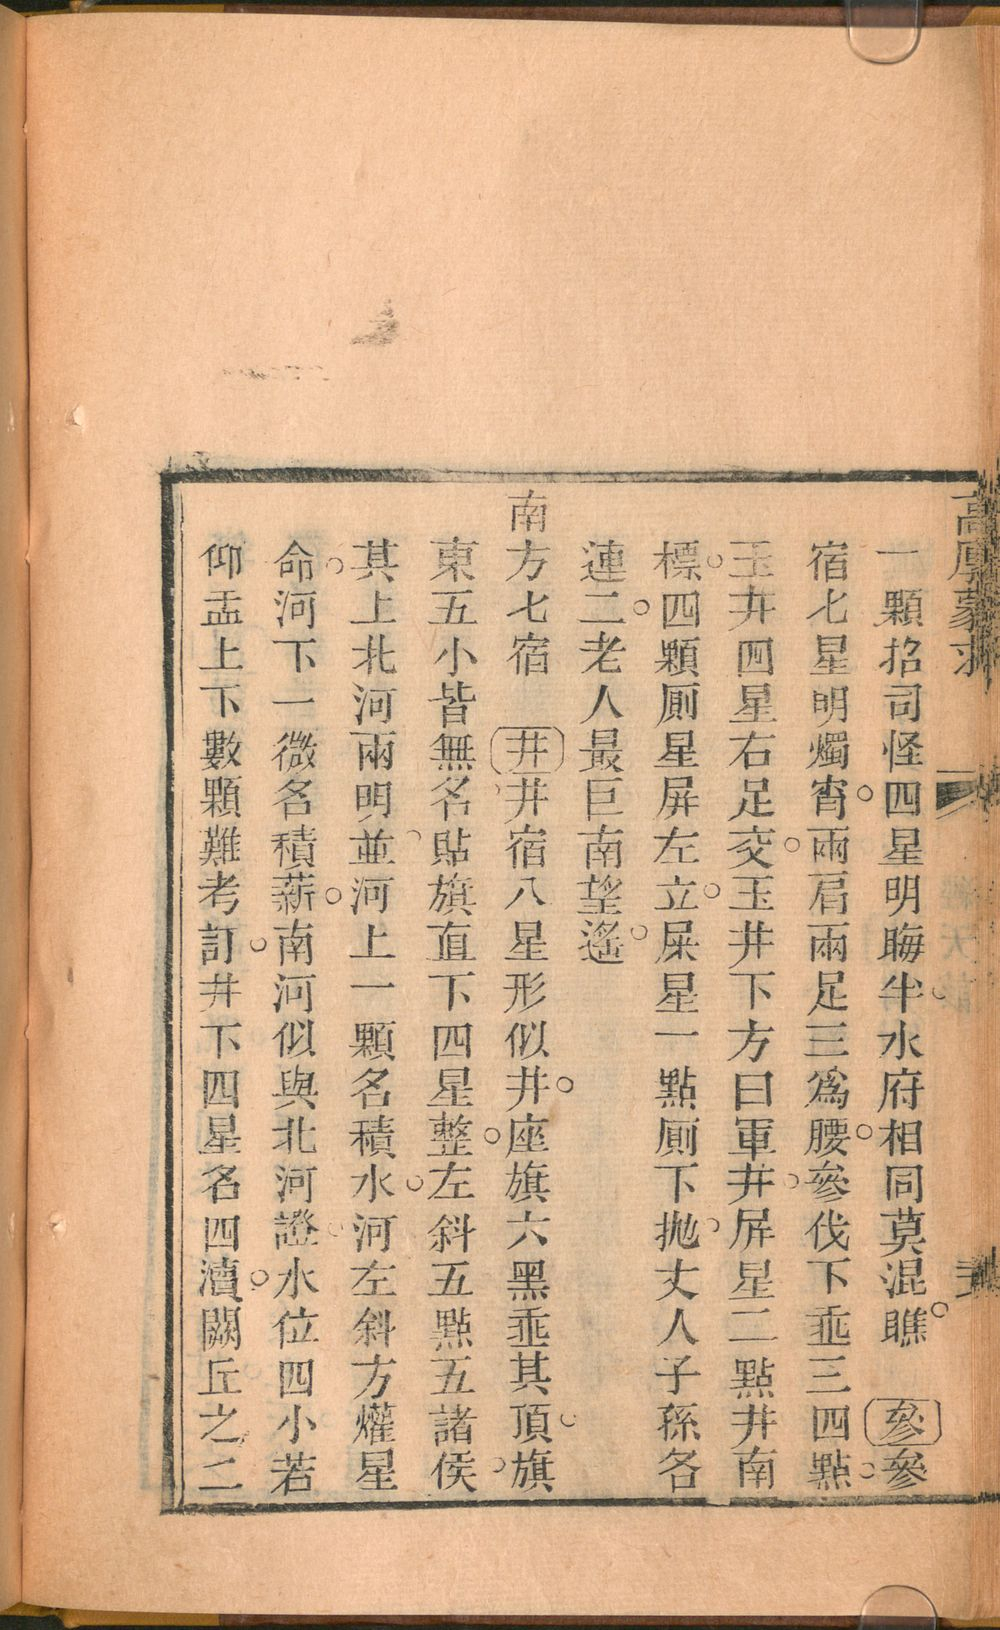 高厚蒙求
一顆招司怪四星明晦半水府相同莫混瞧 參參
宿七星明燭宵兩肩兩足三爲腰參伐下垂三四點
玉井四星右足交玉井下方曰軍井屏星二點井南
標四顆厠星屏左立屎星一點厠下拋丈人子孫各
連二老人最巨南望遙
南方七宿 井井宿八星形似井座旗六黑垂其頂旗
東五小皆無名貼旗直下四星整左斜五點五諸侯
其上北河兩明並河上一顆名積水河左斜方爟星
命河下一微名積薪南河似與北河證水位四小若
仰盂上下數顆難考訂井下四星名四瀆闕丘之二